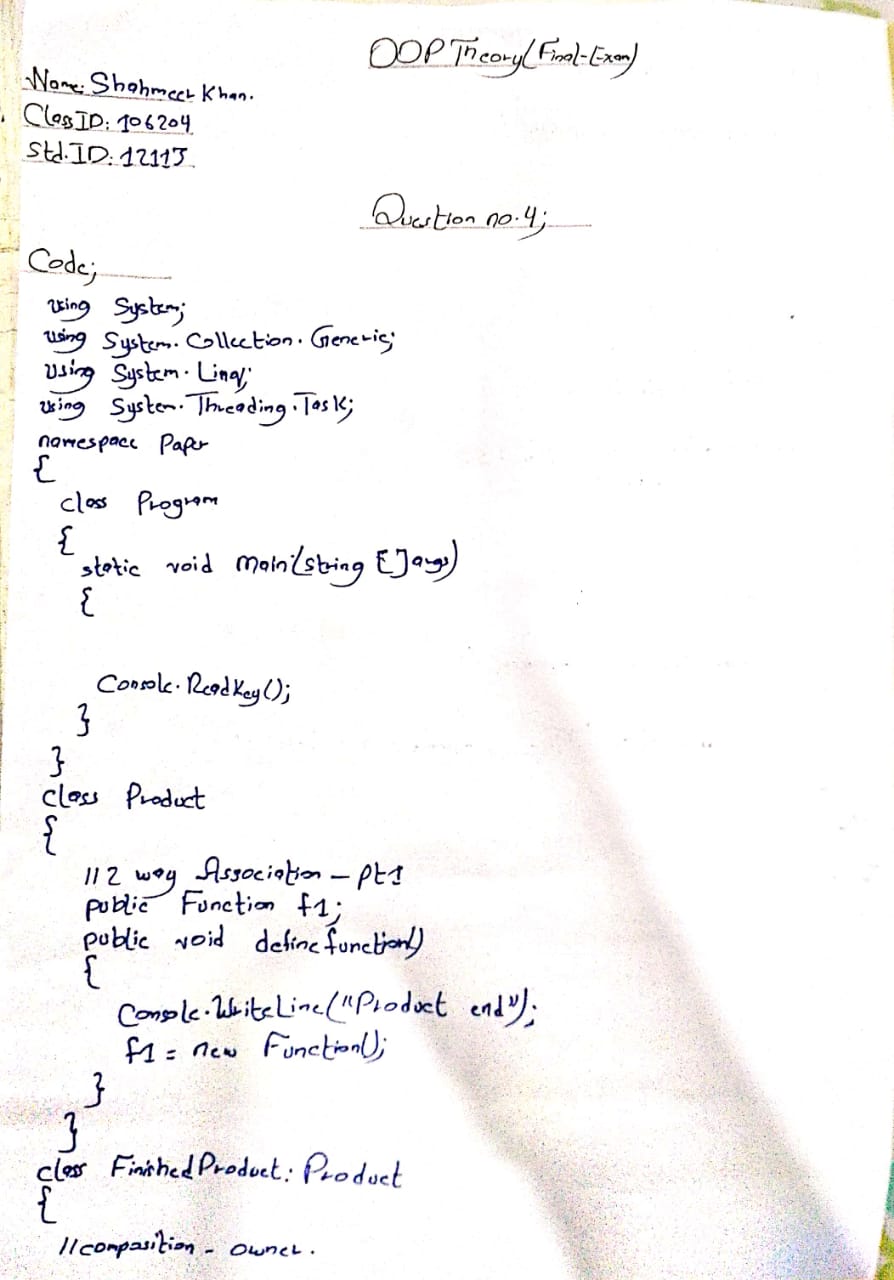 OOP Theory(Final-Exam)
Name: Shahmeer Khan.
Class ID: 106204
Std.ID: 12113
Question no.4;
Code;
using System;
using System.Collection.Generic;
using System.Linq;
using System.Threading.Task;
namespace Paper
{
class Program
{
static void Main(string []args)
{
Console.ReadKey();
}
}
class Product
{
//2 way Association - pt1
public Function f1;
public void definefunction()
{
Console.WriteLine("Product end");
f1 = new Function();
}
}
class FinishedProduct: Product
{
//composition - owner.